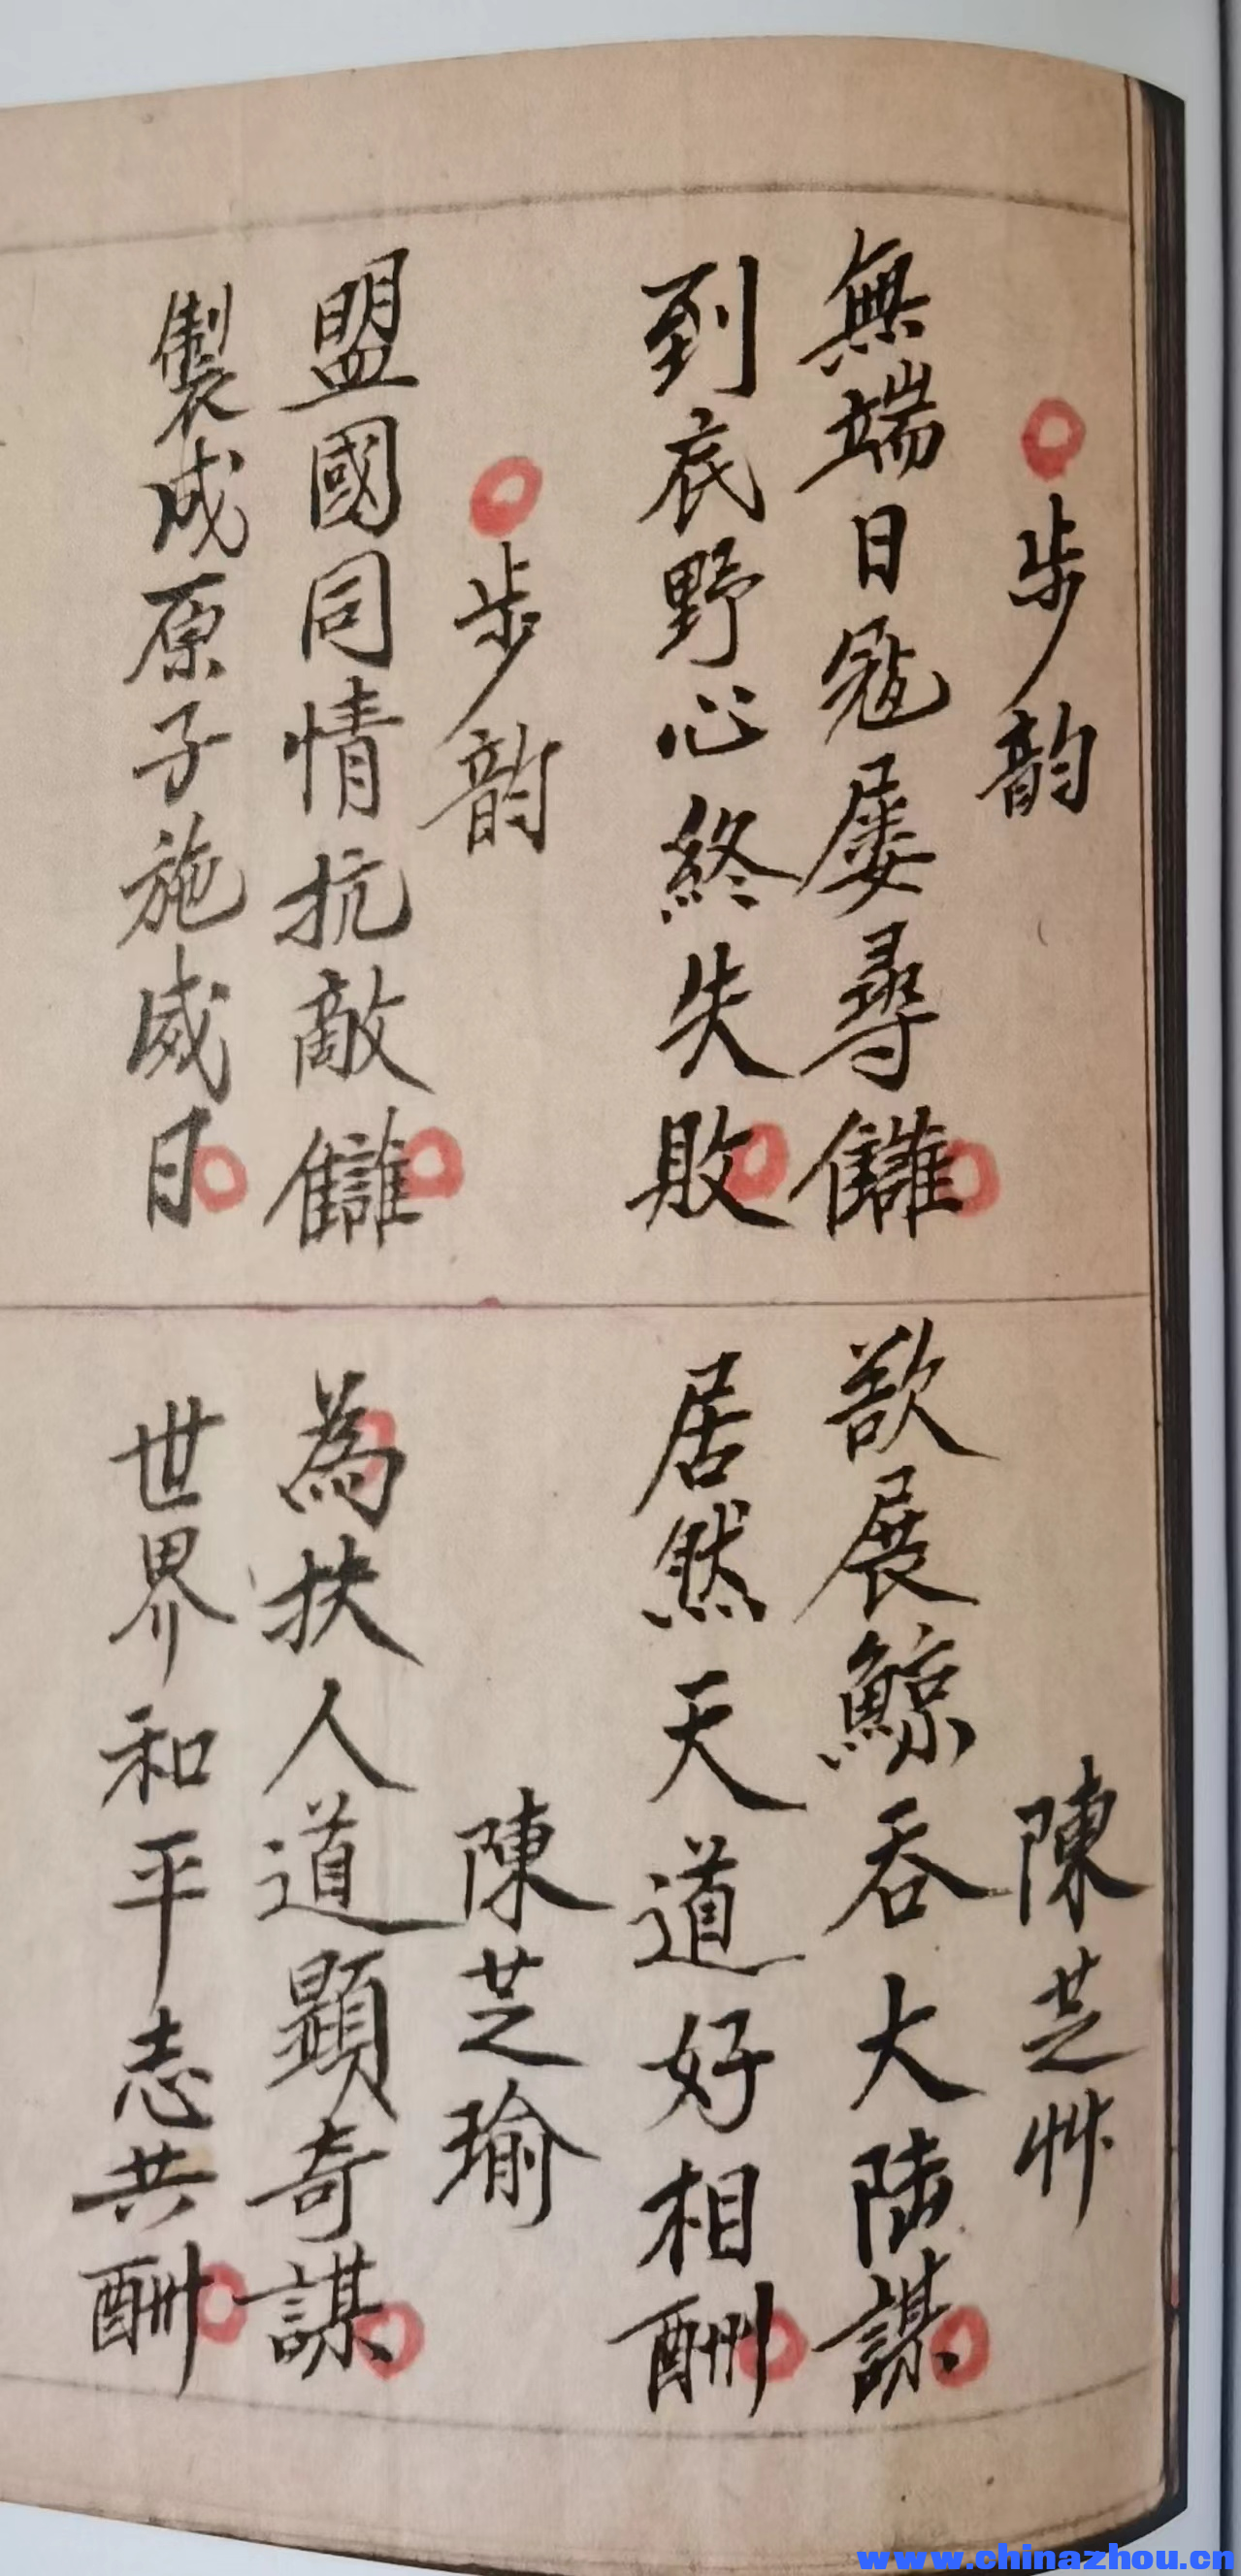 步韵 陳芝艸
無端日寇屡尋讎 欲展鯨吞大陸謀
到底野心終失敗 居然天道好相酬
步韵 陳芝瑜
盟國同情抗敵讎 為扶人道顯奇謀
製成原子施威日 世界和平志共酬
www.chinazhou.cn